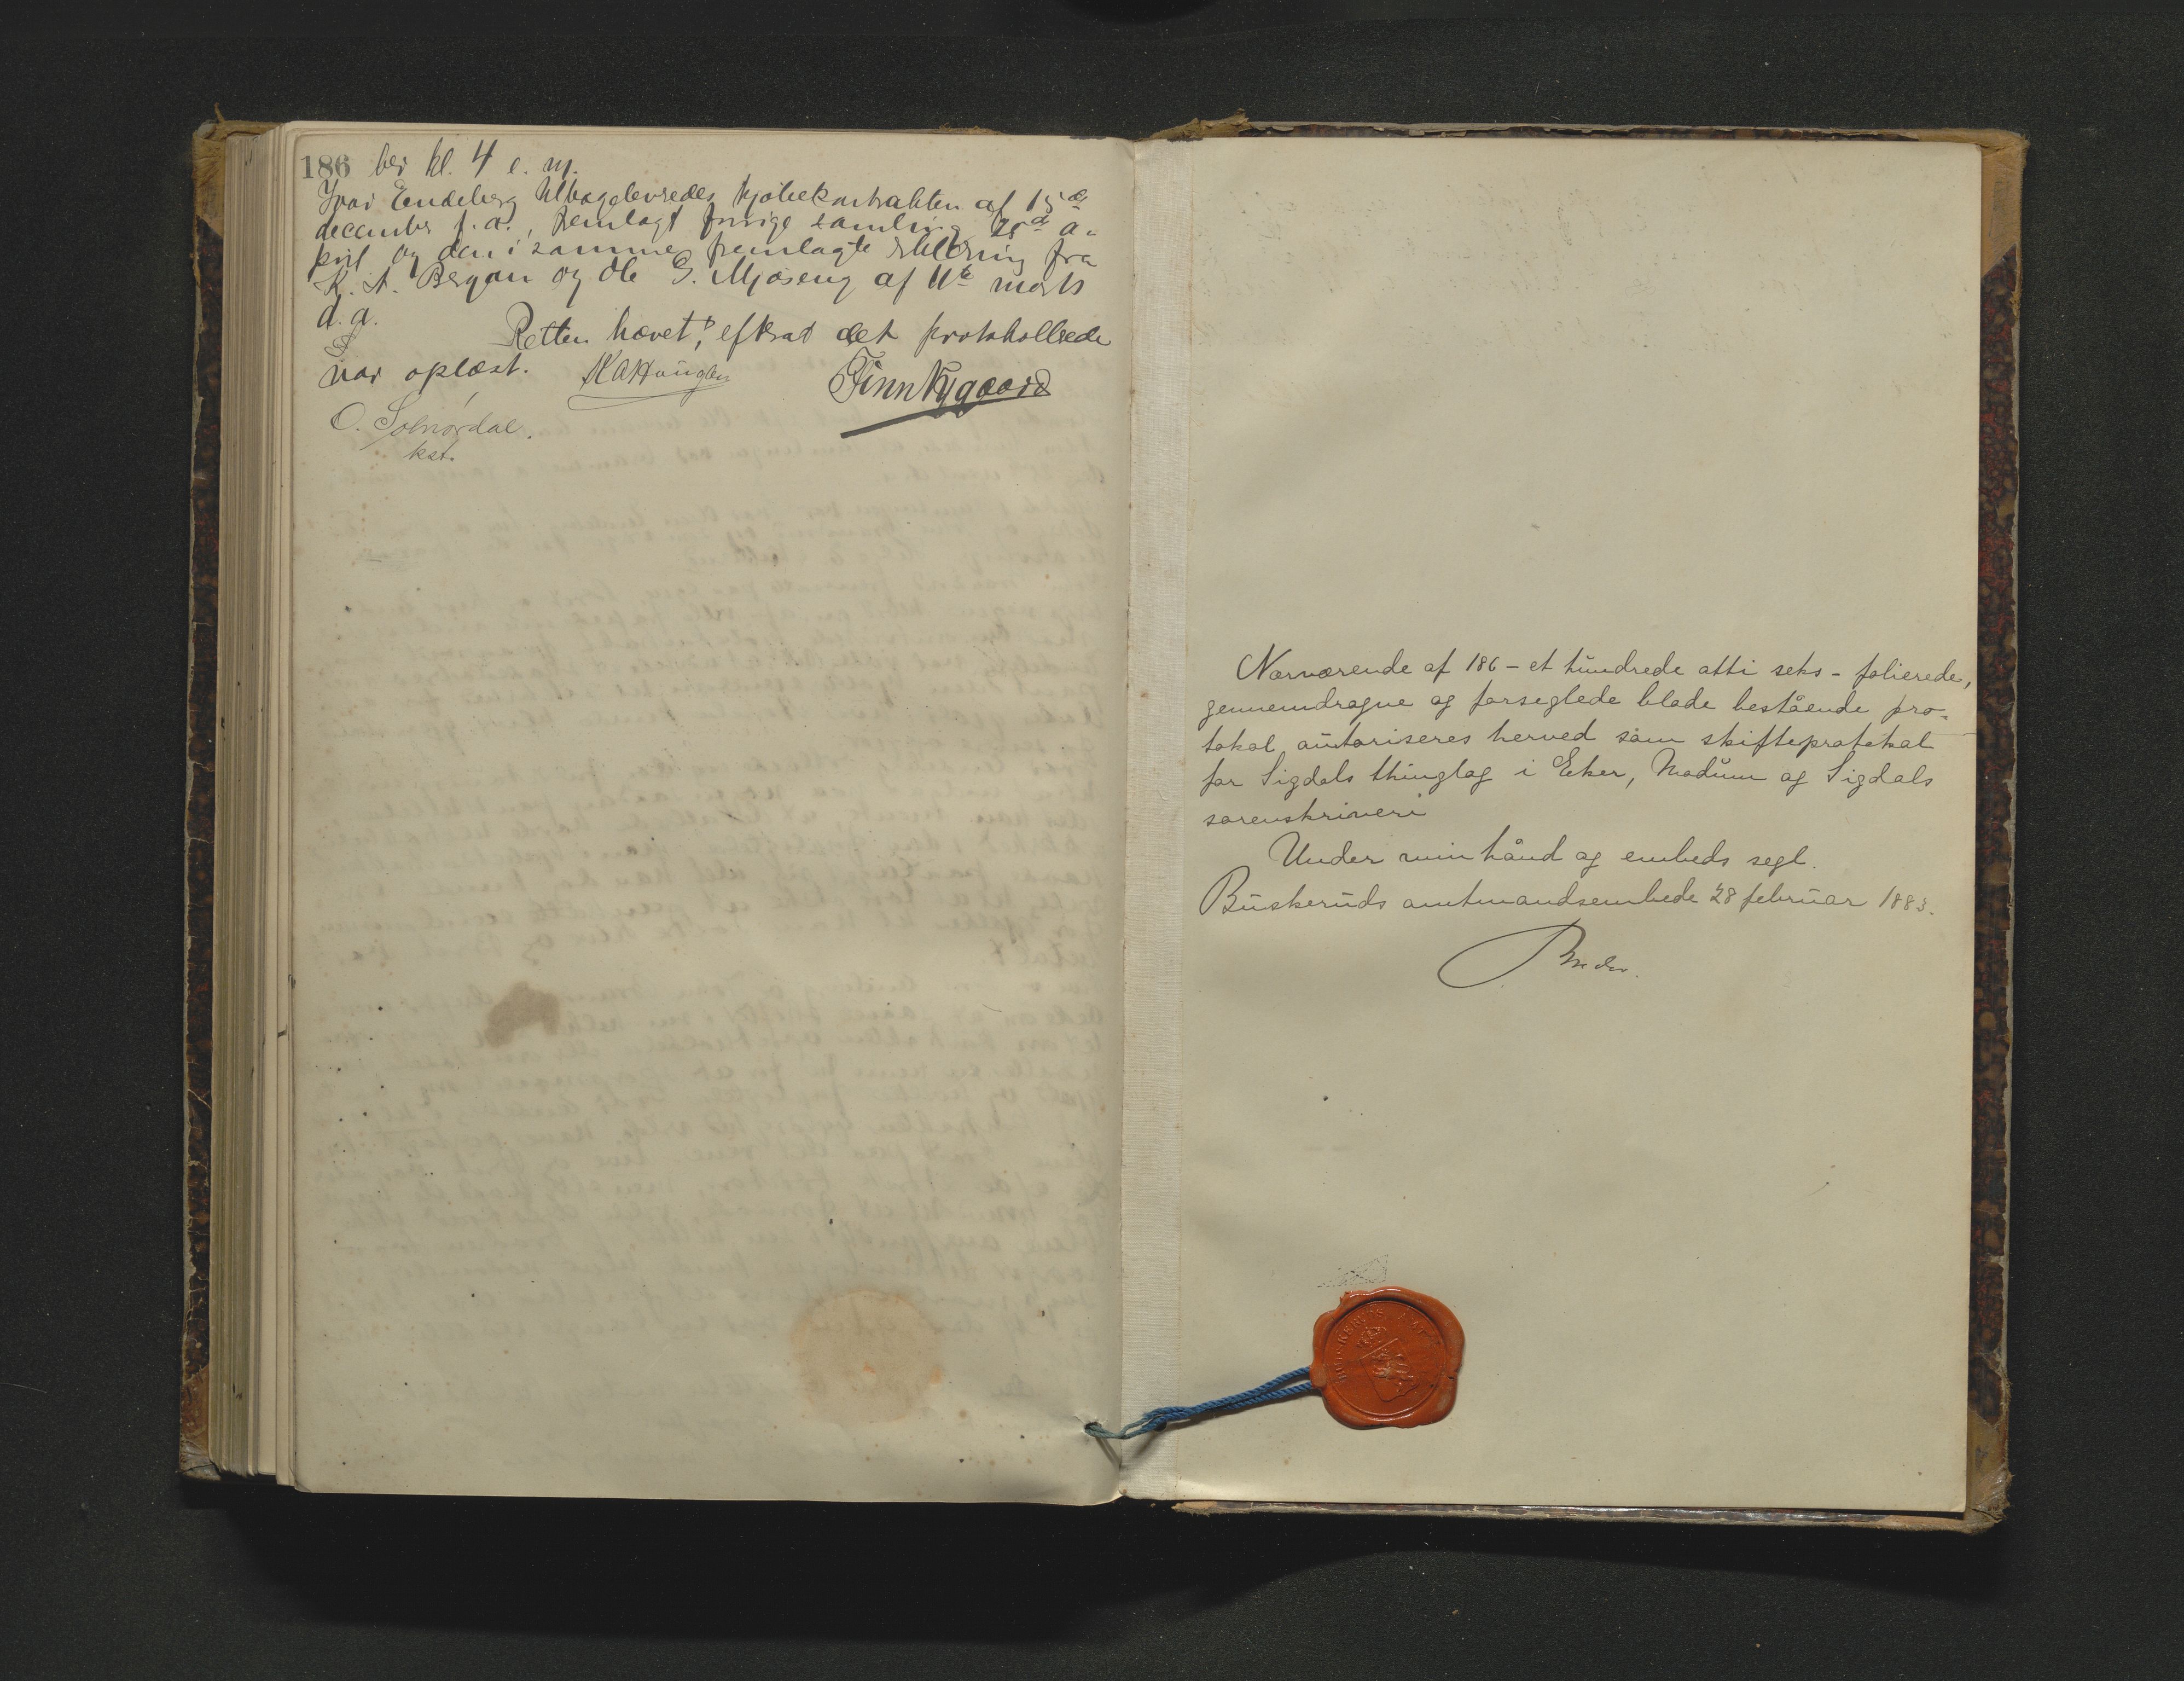 186 ber kl. 4 e. m.
Ivar Endeberg tilbageleveredes kjøbekontrakten af 15de
december f. a., fremlagt forrige samling 25d a-
pril og den i samme fremlagte erklæring fra
K. A. Bergan og Ole G. Mjøseng af 11te marts
d. a.
Retten hævet, efterat det protokollerede
var oplæst.
Finn Nygaard
O. Solnørdal.
kst.
Nærværende af 186 - et hundrede otti seks - folierede,
gennemdragne og forseglede blade bestående pro-
tokol autoriseres herved som skifteprotokol
for Sigdals thinglag i Eker, Modum og Sigdals
sorenskriveri
Under min hånd og embeds segl.
Buskeruds amtmandsembede 28 februar 1883.
BUSKERUDS AMT